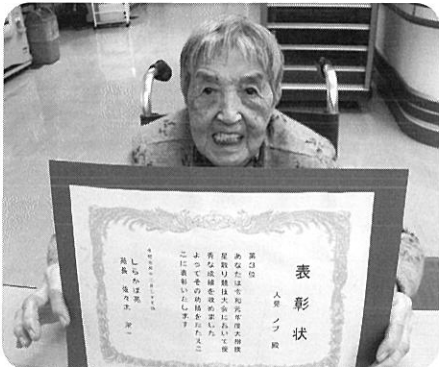 表彰状
人見 ノブ 殿
第３位
あなたは令和元年度大相撲
星取り競技大会において優
秀な成績を収めました
よってその功績をたたえこ
こに表彰いたします
しらかば苑
苑長 佐々木